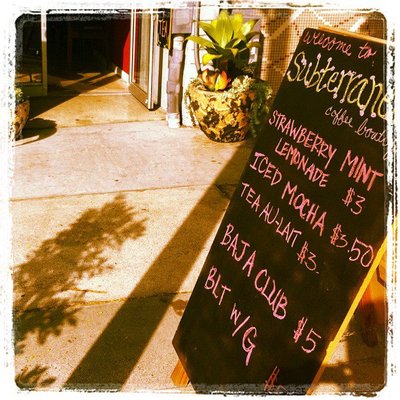 welcome to:
Subterranean
coffee boutique
STRAWBERRY MINT
LEMONADE $3
ICED MOCHA $3.50
TEA AU-LAIT $3.
BAJA CLUB $5
BLT W/G